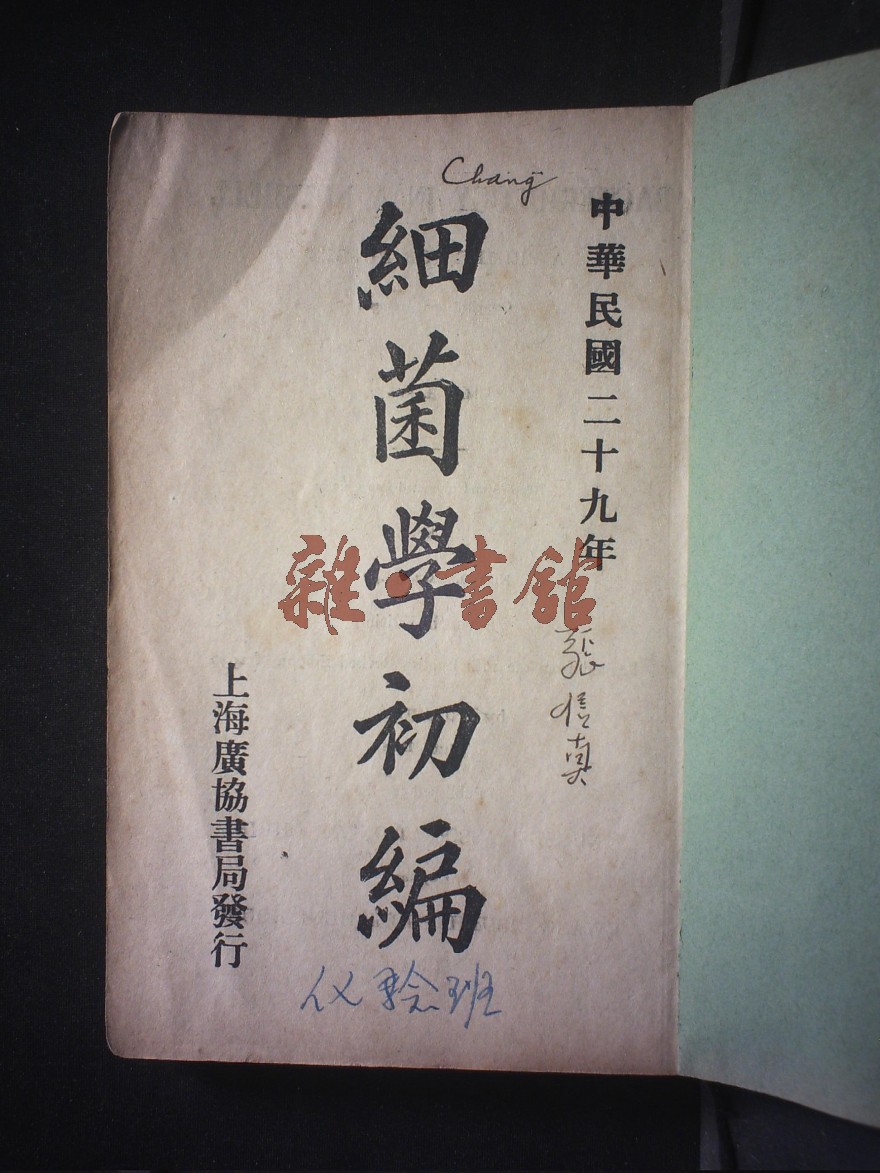 Chang
中華民國二十九年
張信真
細菌學初編
雜·書館
上海廣協書局發行
化驗班